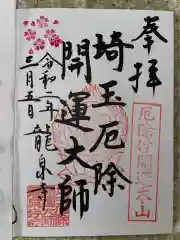 奉拝
厄除け開運本山
埼玉厄除
開運大師
令和二年 龍泉寺
三月五日